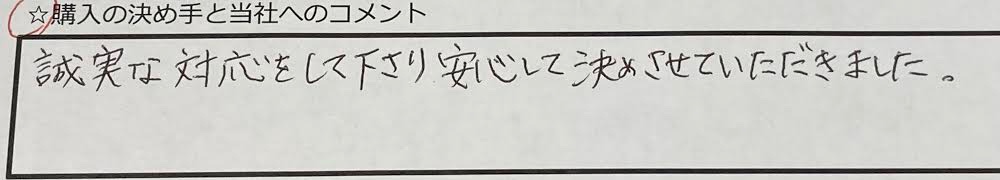 ☆購入の決め手と当社へのコメント
誠実な対応をして下さり安心して決めさせていただきました。